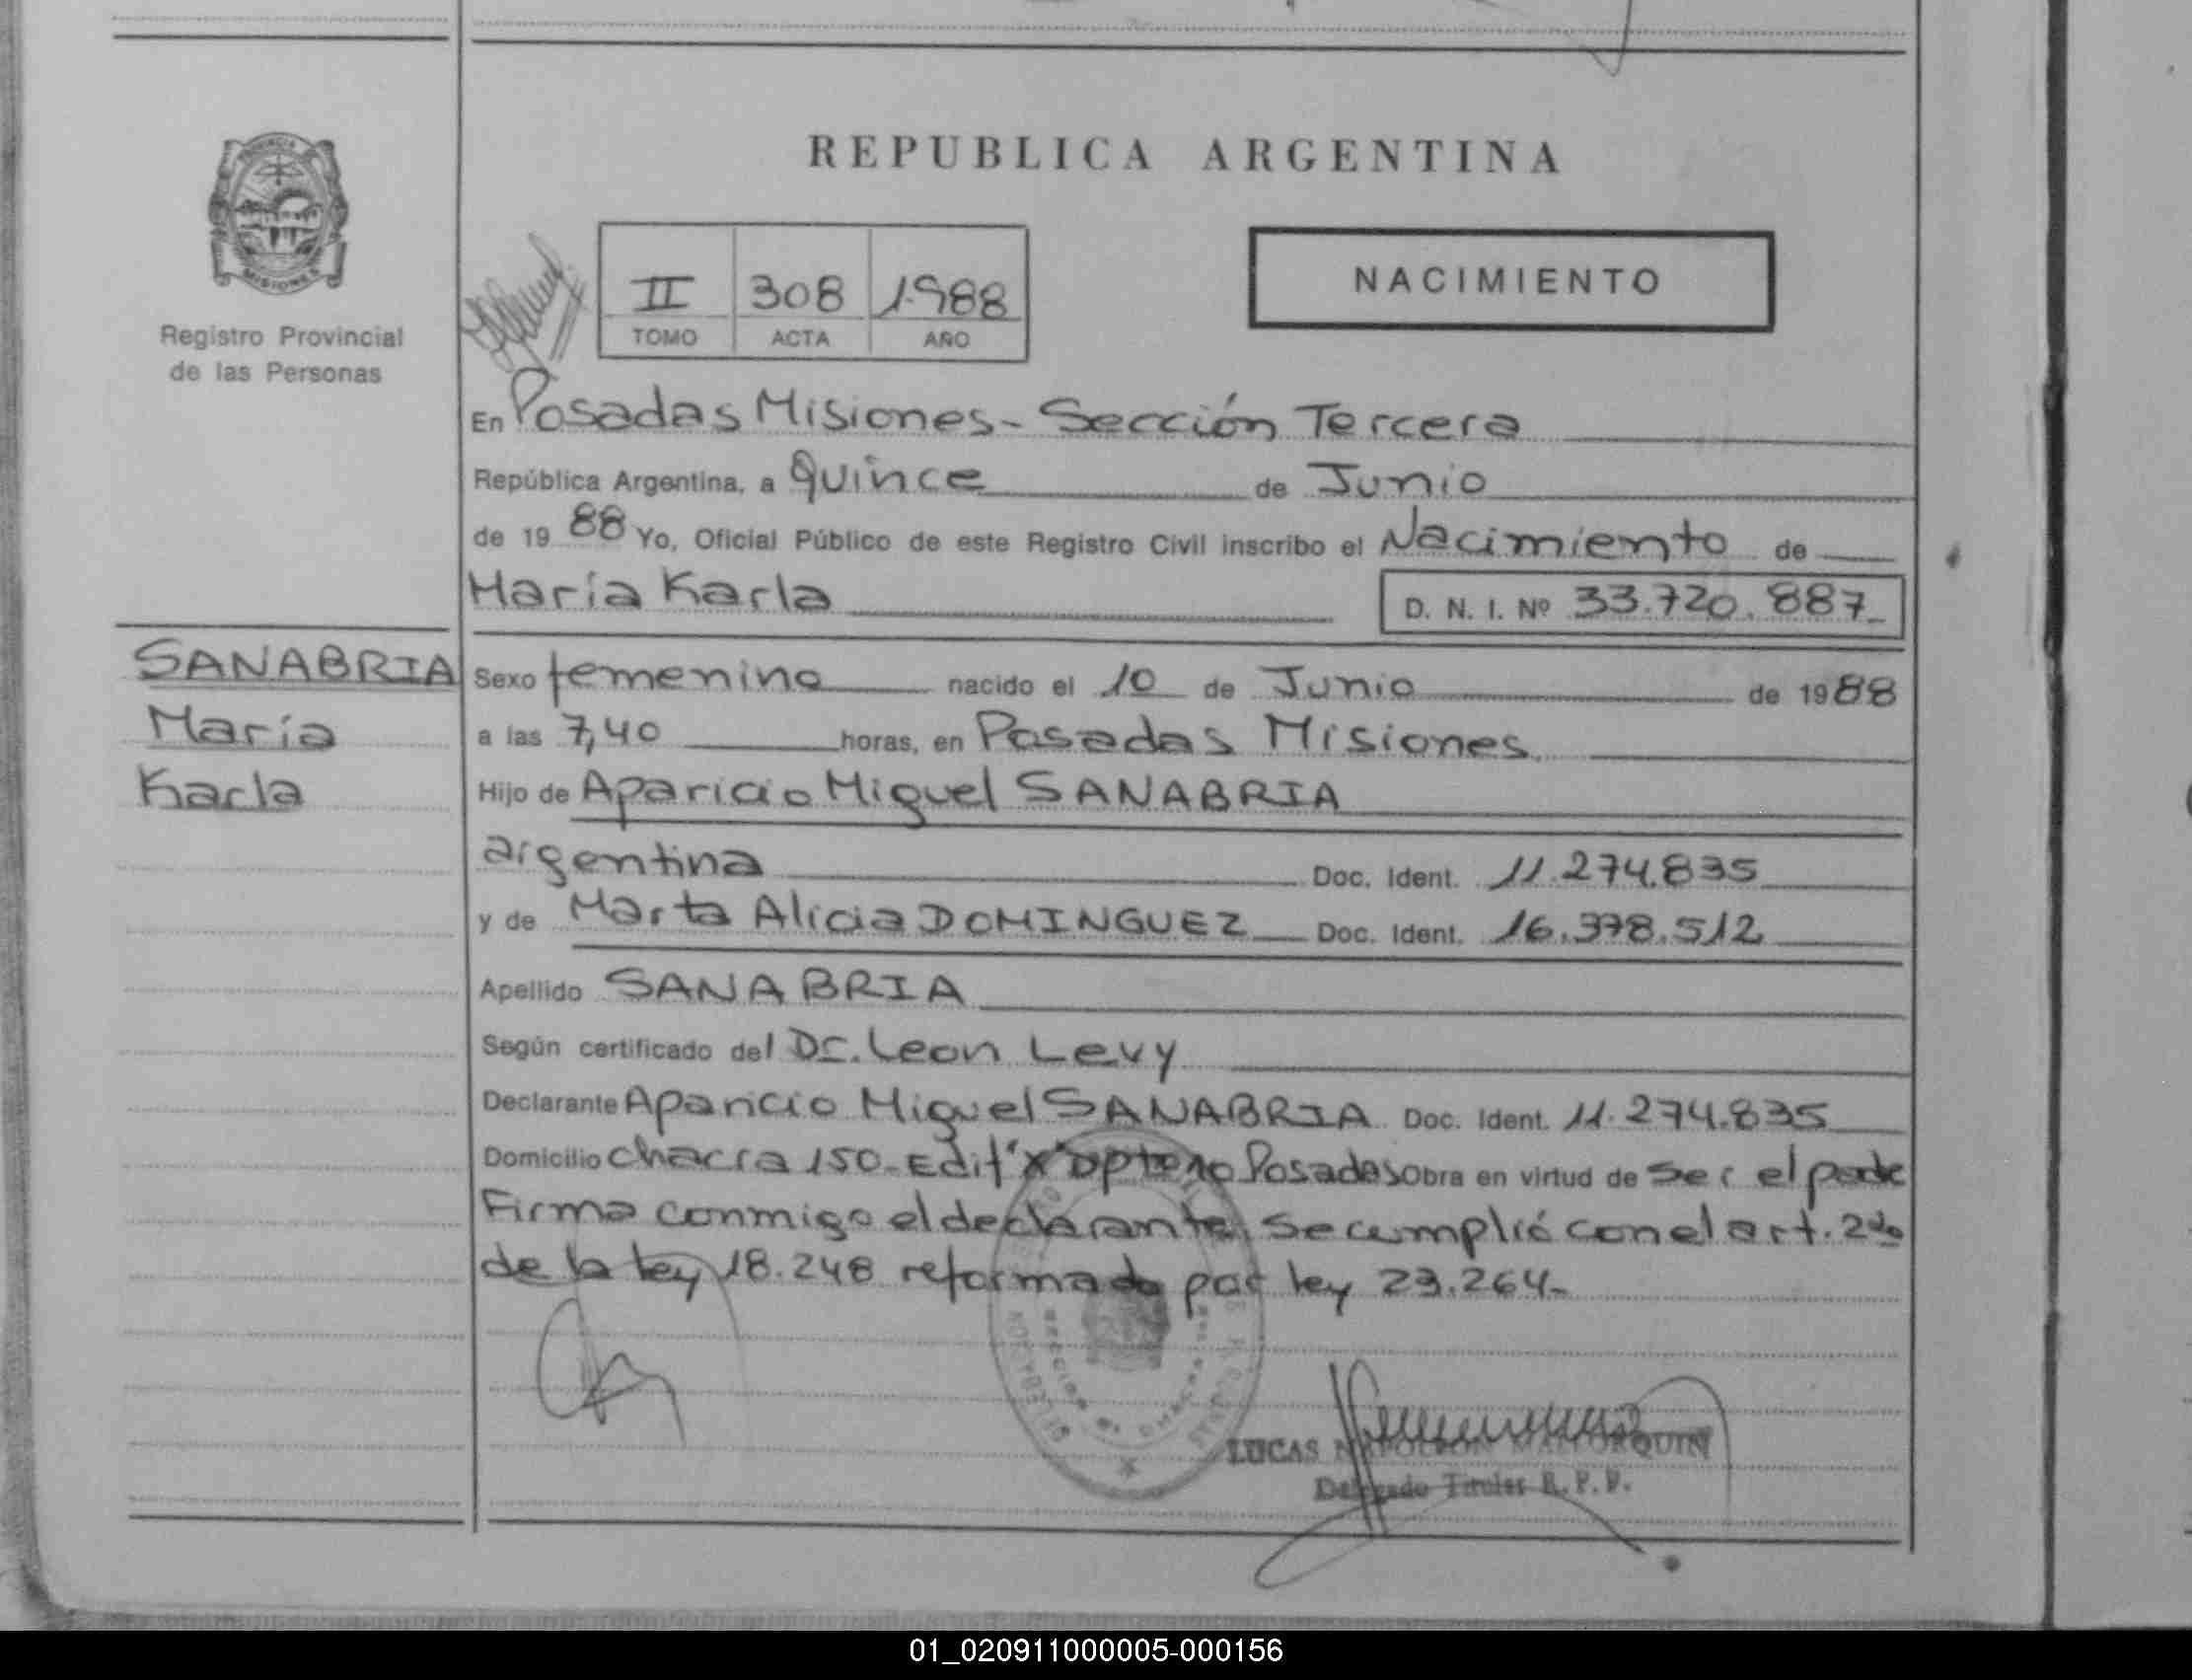 REPUBLICA ARGENTINA
MISIONES
Registro Provincial
de las Personas
II 308 1988
TOMO ACTA AÑO
NACIMIENTO
En Posadas Misiones - Sección Tercera
República Argentina, a Quince de Junio
de 19 88 Yo, Oficial Público de este Registro Civil inscribo el Nacimiento de
María Karla D. N. I. Nº 33.720.887
SANABRIA
María
Karla
Sexo femenino nacido el 10 de Junio de 1988
a las 7,40 horas, en Posadas Misiones
Hijo de Aparicio Miguel SANABRIA
argentina Doc. Ident. 11.274.835
y de Marta Alicia DOMINGUEZ Doc. Ident. 16.378.512
Apellido SANABRIA
Según certificado del Dr. Leon Levy
Declarante Aparicio Miguel SANABRIA Doc. Ident. 11.274.835
Domicilio Chacra 150 - Edif "X" Posadas Obra en virtud de ser el padre
Firma conmigo el declarante, se cumplió con el art. 2do
de la ley 18.248 reformado por ley 23.264-
LUCAS
Delegado Titular R. P. P.
01_020911000005-000156